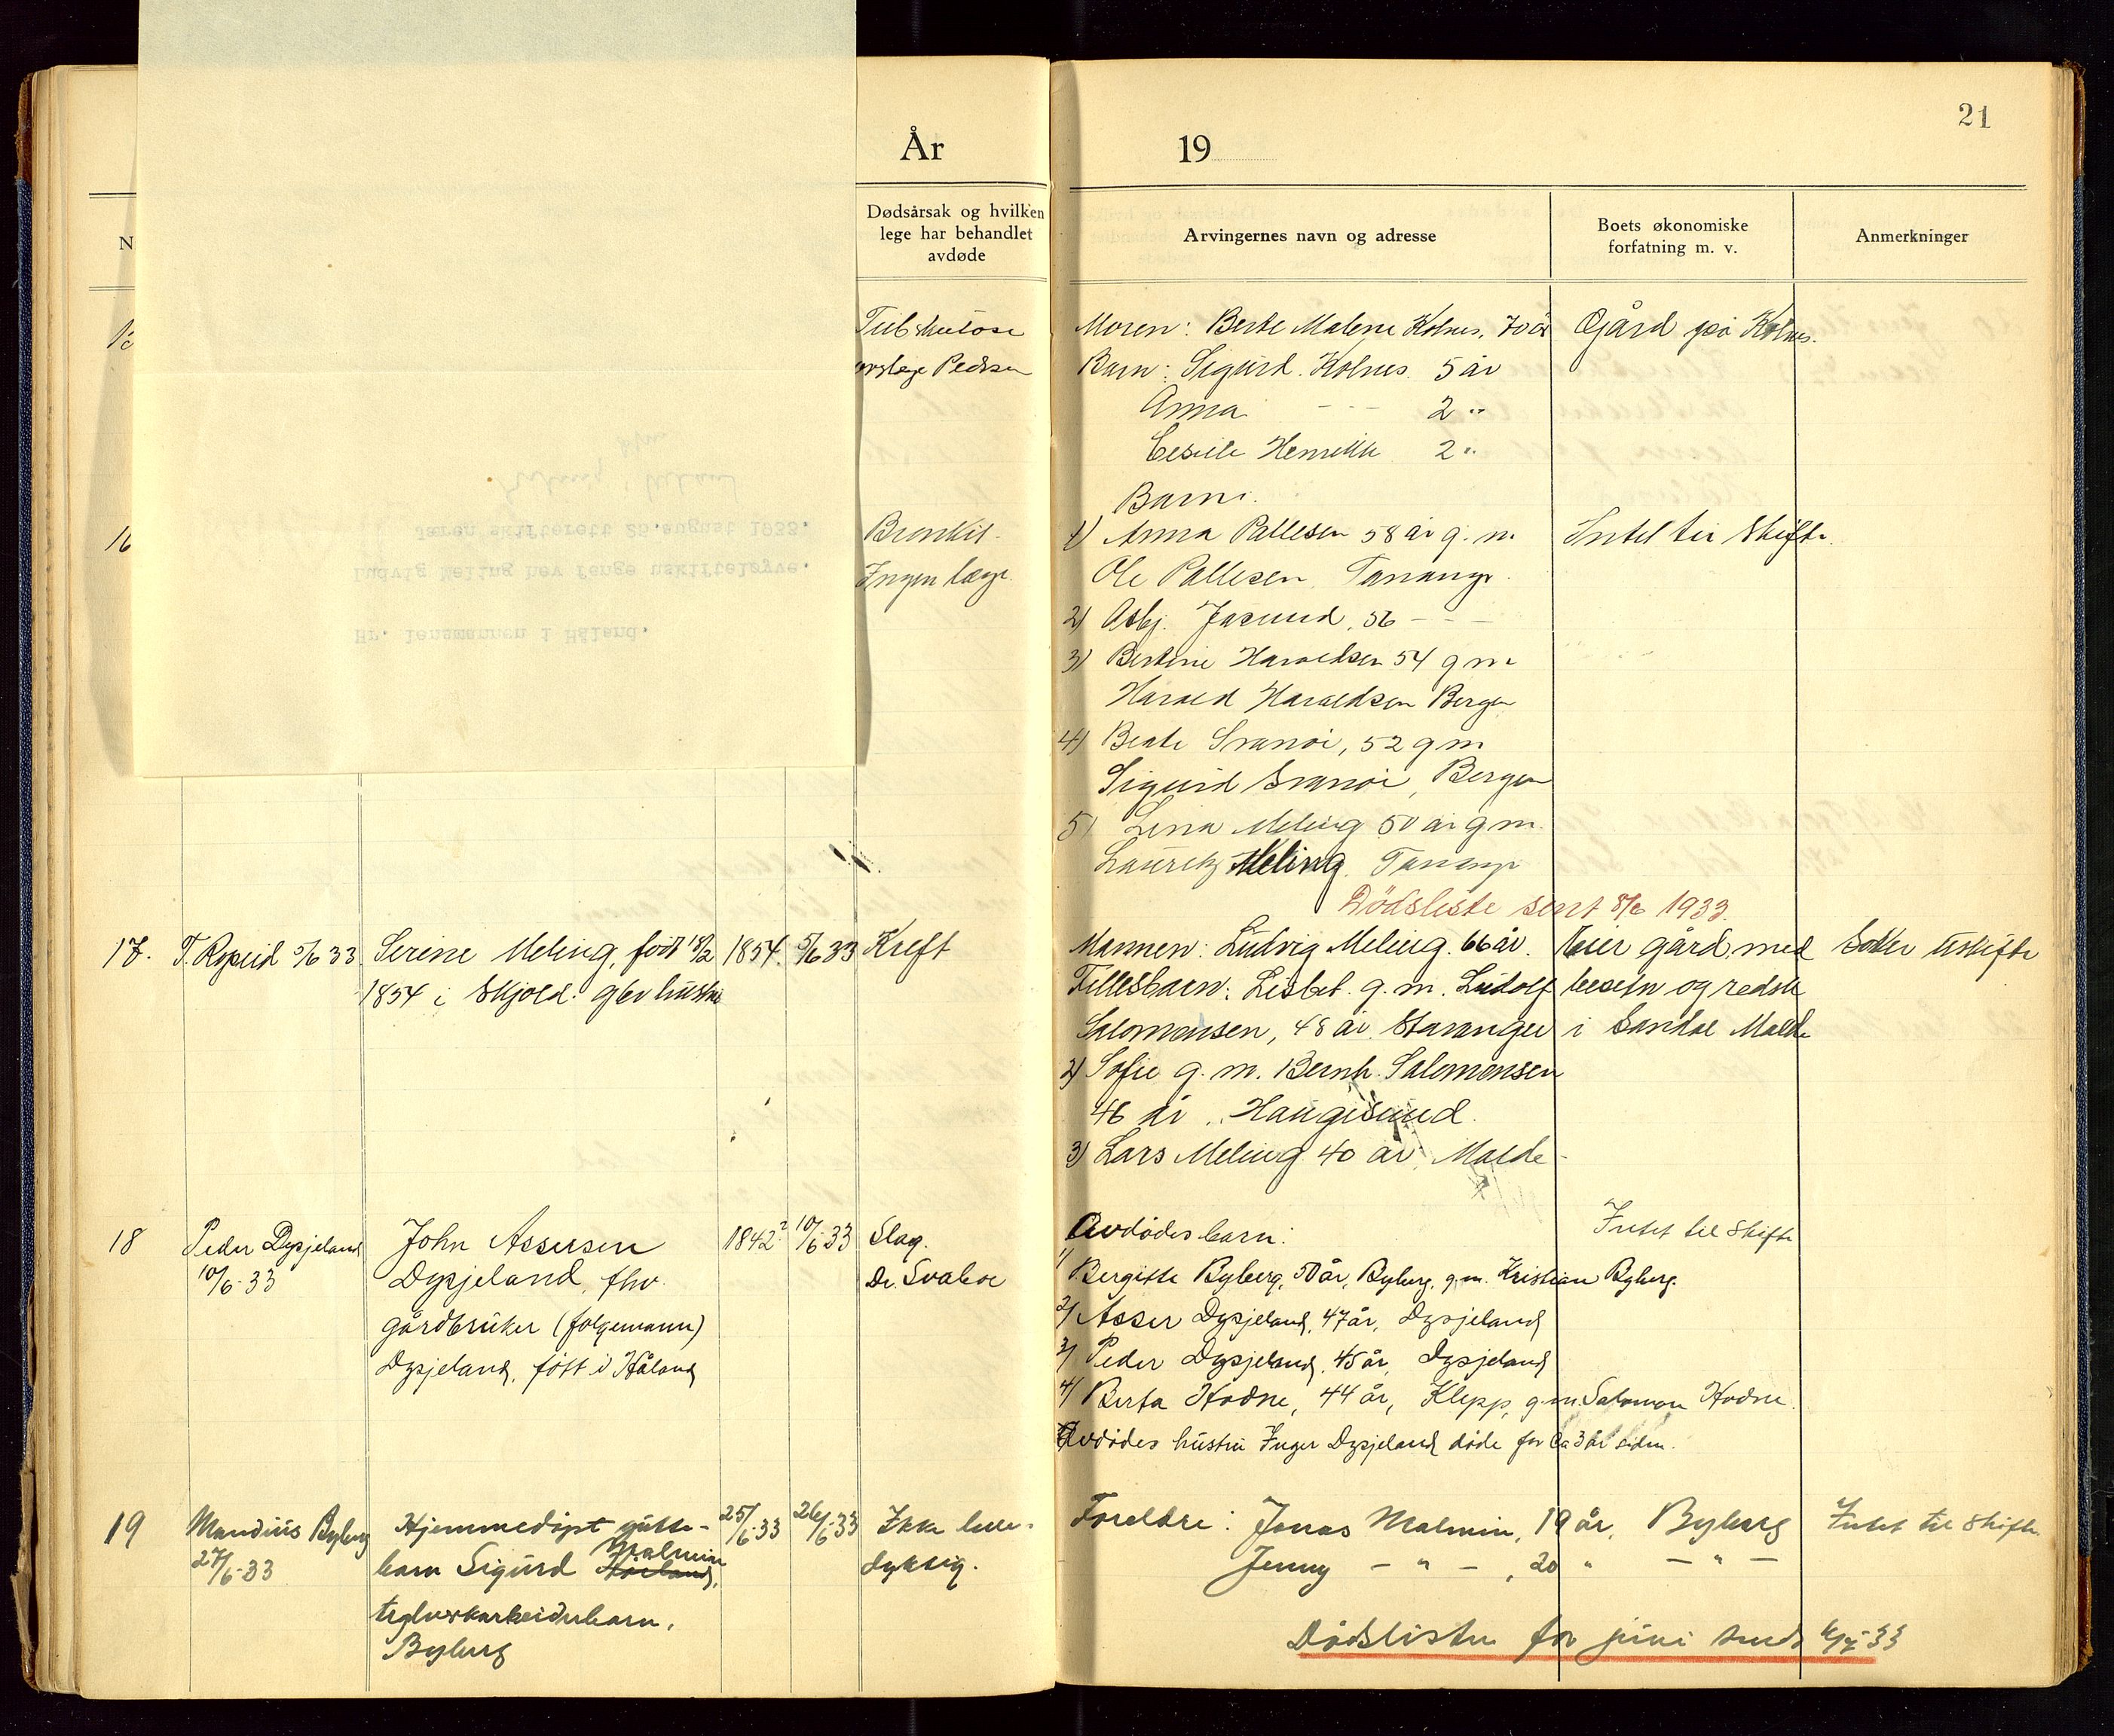 21
År 19
N
Dødsårsak og hvilken
lege har behandlet
avdøde
Arvingernes navn og adresse
Boets økonomiske
forfatning m. v.
Anmerkninger
Moren: Berte Malene Kolnes, 70 år
Gård på Kolnes.
Pedersen
Barn: Sigurd Kolnes 5 år
Anna - - - 2 "
Henrikke 2 "
16
Bronkit.
Ingen læge.
Barn:
1) Anna Pallesen 58 år g. m.
Intet til skifte.
Ole Pallesen, Tananger.
2) Asbj. Jasund, 56 - - -
3) Bertine Haraldsen 54 g m
Harald Haraldsen Bergen
4) Beate Svanøi, 52 g m
Sigurd Svanøi, Bergen
5) Lina Meling 50 år g m.
Lauritz Meling. Tananger
Hr. lensmannen i Håland.
Ludvig Meling hev fenge uskifteløyve.
Jæren skifterett 25.august 1933.
Dødsliste sent 8/6 1933.
17. T. Rypeid 5/6 33. Serine Meling, født 18/2 1854. 5/6 33 Kreft
1854 i Skjold. gbr hustru
Mannen: Ludvig Meling. 66 år. Eier gård med Søker uskifte
Fellesbarn: Lisbet g. m. Ludolf besetn og redsk
Salomonsen, 48 år Stavanger i Sandal Malde
2) Sofie g. m. Bernh. Salomonsen
46 år, Haugesund.
3) Lars Meling 40 år Malde
18 Peder Dysjeland John Assersen 1842? 10/6-33 Slag.
10/6-33 Dysjeland, fhv. Dr. Svaboe
gårdbruker (følgemann)
Dysjeland, født i Håland
Avdødes barn: Intet til skifte
1/ Bergitte Byberg, 50 år, Byberg, g.m. Kristian Byberg.
2/ Asser Dysjeland, 47 år, Dysjeland
3/ Peder Dysjeland, 45 år, Dysjeland
4/ Berta Hodne, 44 år, Klepp, g.m. Salomon Hodne.
Avdødes hustru Inger Dysjeland døde for ca 3 år siden.
19 Mandius Byberg Hjemmedøpt gutte- 25/6-33 26/6-33 Ikke leve-
27/6-33 barn Sigurd Malmin dyktig.
teglverkarbeiderbarn,
Byberg
Foreldre: Jonas Malmin, 19 år, Byberg Intet til skifte
Jenny - " - , 20 " - " -
Dødslisten for juni sendt 6/7-33